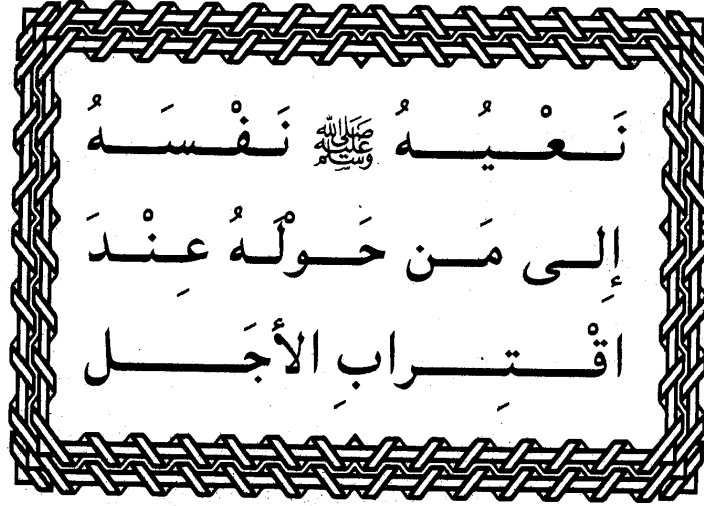 نَعْيُهُ ﷺ نَفْسَهُ
إِلى مَن حَوْلَهُ عِنْدَ
اقْتِرابِ الأجَل